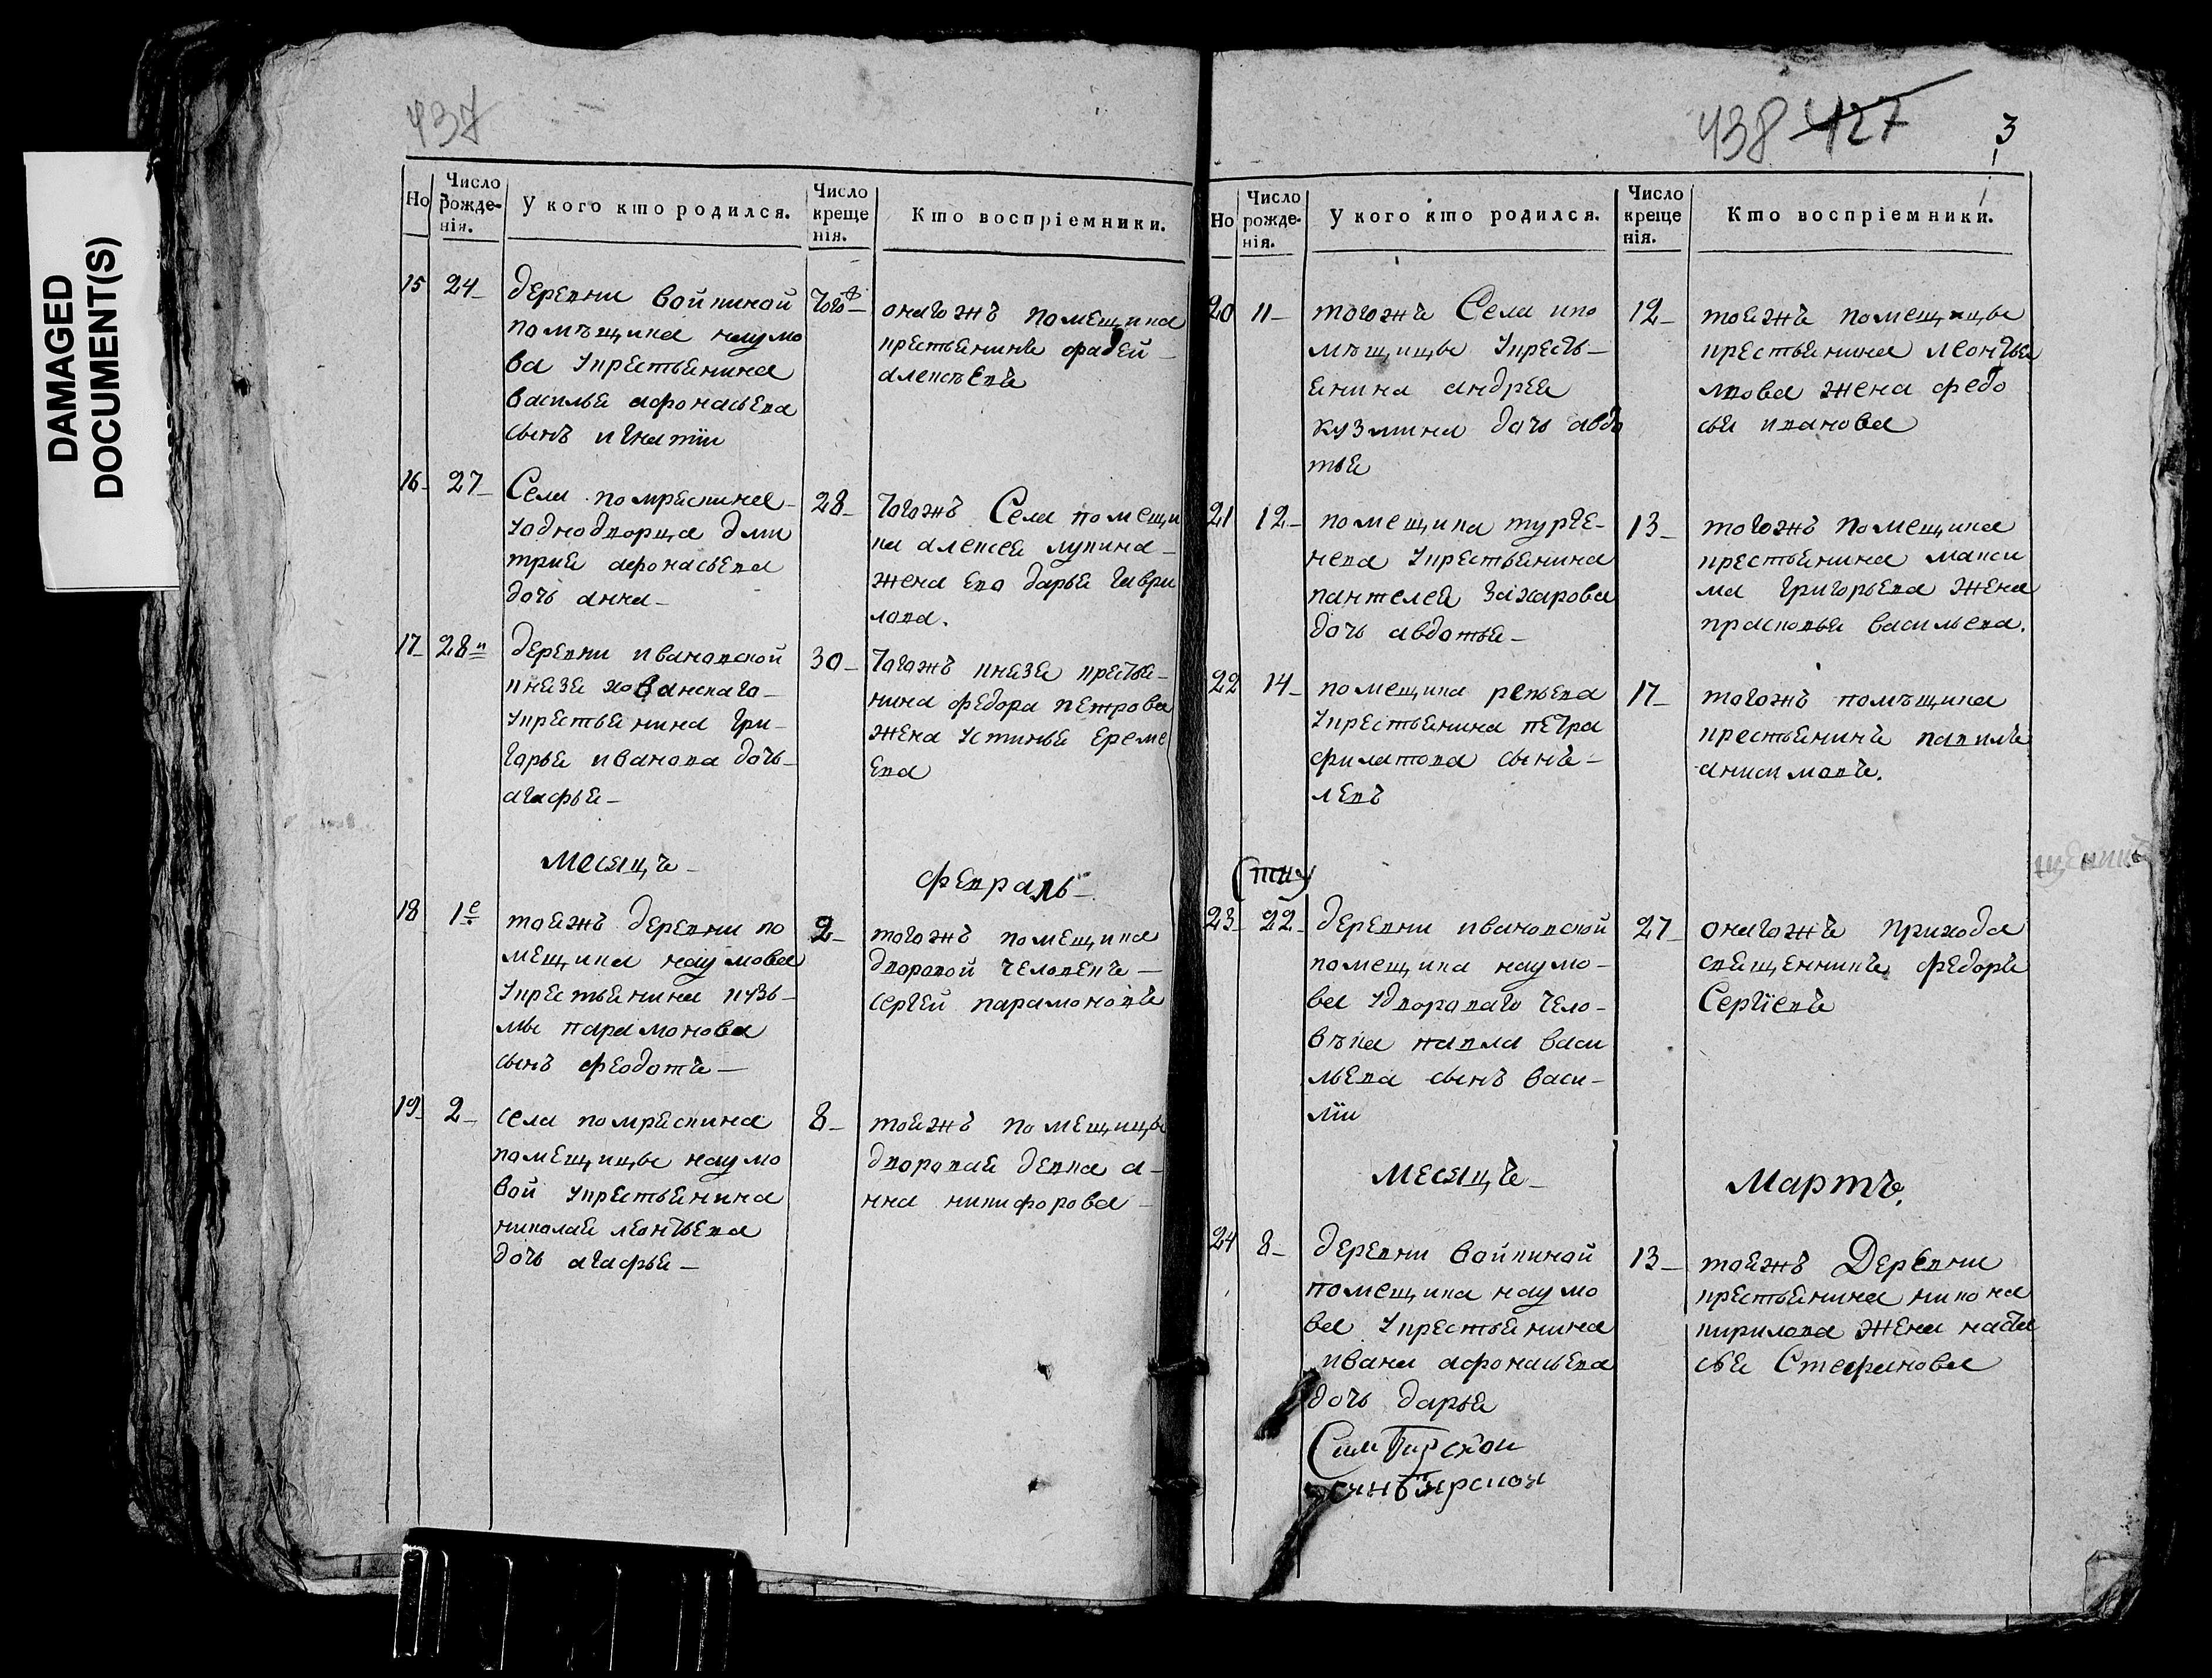 DAMAGED
DOCUMENT(S)
437
Но
Число
рожде-
нія.
У кого кто родился.
Число
креще
нія.
Кто воспріемники.
15 24
деревни войкиной
помѣщика наумо
ва укрестьянина
василья афонасьева
сынъ игнатїи
тогож
онагожъ помещика
крестьянинъ фадей
алексѣевъ
16 27
Села помряскина
уоднодворца дми
трия афонасьева
дочь анна
28
тогожъ Села помещи
ка алексея лукина
жена ево дарья гаври
лова.
17 28
деревни ивановской
князя хованскаго
укрестьянина гри-
горья иванова дочь
агафья
30
тогожъ князя крестья-
нина федора петрова
жена устинья ереме
ева
Месяцъ
февраль
18 1е
тояжъ деревни по
мещика наумова
укрестьянина кузь-
мы парамонова
сынъ феодотъ
2
тогожъ помещика
дворовой человекъ
сергей парамоновъ
19 2
села помряскина
помещицы наумо
вой укрестьянина
николая леонтьева
дочь агафья
8
тояжъ помещицы
дворовая девка а-
нна никифорова
438 427 3
Но
Число
рожде-
нія.
У кого кто родился.
Число
креще
нія.
Кто воспріемники.
20 11
тогожъ Села ипо
мѣщицы укресть-
янина андрея
кузмина дочь авдо
тья
12
тояжъ помещицы
крестьянина леонтья
львова жена федо
сья иванова
21 12
помещика турге-
нева укрестьянина
пантелея захарова
дочь авдотья
13
тогожъ помещика
крестьянина макси
ма григорьева жена
прасковья васильева.
22 14
помещика репьева
укрестьянина петра
филатова сынъ
левъ
17
тогожъ помѣщика
крестьянинъ вавила
анисимовъ.
23 22
деревни ивановской
помещика наумо-
ва удвороваго чело-
вѣка павла васи
льева сынъ васи-
лїи
27
онагожъ прихода
священникъ федоръ
Сергїевъ
Месяцъ
Мартъ.
24 8
деревни войкиной
помещика наумо
ва укрестьянина
ивана афонасьева
дочь дарья
13
тояжъ Деревни
крестьянина никона
кирилова жена наста
сья Стефанова
Симбирской
синбирской